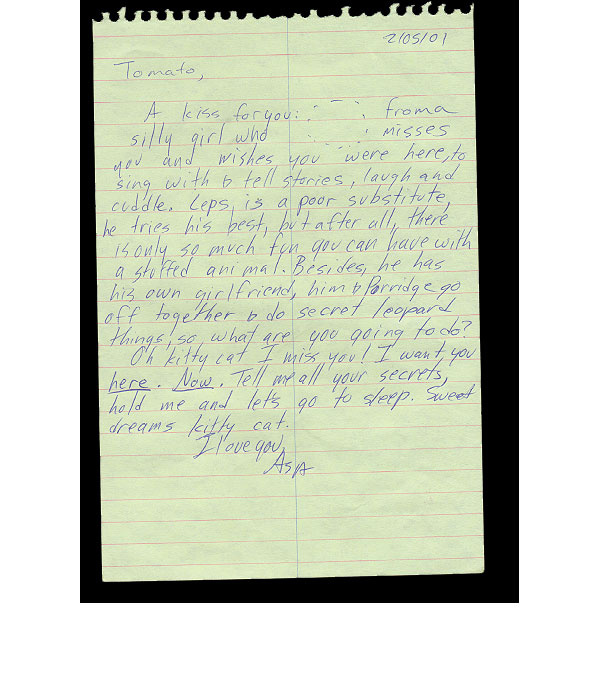 2/05/01
Tomato,
A kiss for you: from a
silly girl who misses
you and wishes you were here, to
sing with & tell stories, laugh and
cuddle. Leps, is a poor substitute,
he tries his best, but after all, there
is only so much fun you can have with
a stuffed animal. Besides, he has
his own girlfriend, him & Porridge go
off together & do secret leopard
things, so, what are you going to do?
Oh kitty cat I miss you! I want you
here. Now. Tell me all your secrets,
hold me and let's go to sleep. Sweet
dreams kitty cat.
I love you,
AsA